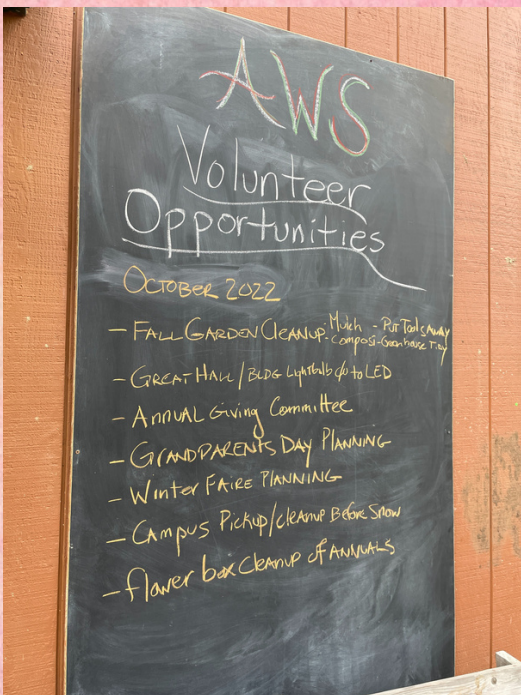 AWS
Volunteer
Opportunities
OCTOBER 2022
- FALL GARDEN CLEANUP: Mulch - PUT TOOLS AWAY
- Compost - Greenhouse Tidy
- GREAT HALL / BLDG Lightbulb c/o to LED
- ANNUAL Giving Committee
- GRANDPARENTS DAY PLANNING
- WINTER FAIRE PLANNING
- CAMPUS PICKUP/CLEANUP BEFORE SNOW
- flower box CLEANUP of ANNUALS